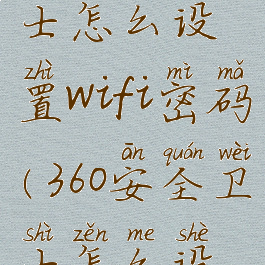 士怎么设
zhì mì mǎ
置wifi密码
ān quán wèi
(360安全卫
shì zěn me shè
士怎么设